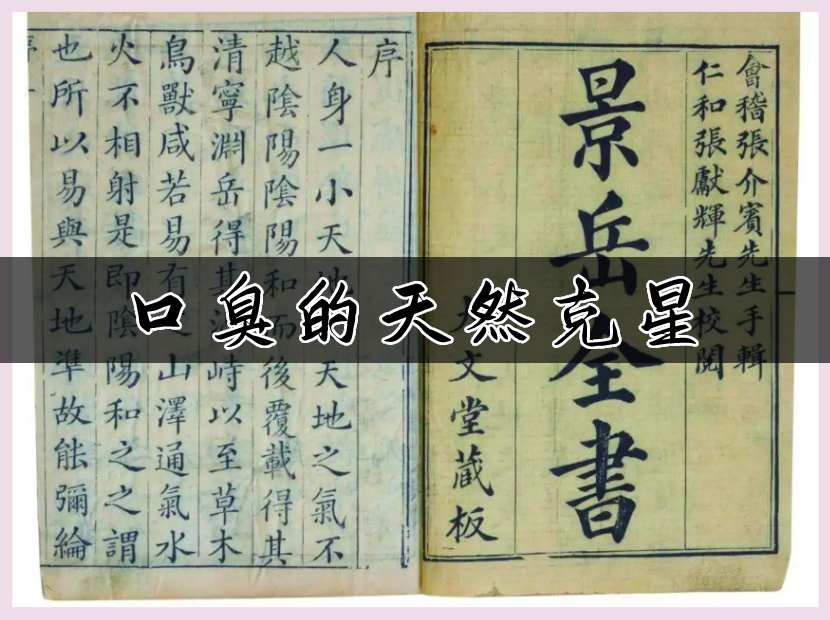 口臭的天然克星
會稽張介賓先生手輯
仁和張獻輝先生校閱
景岳全書
文堂藏板
序
人身一小天地天地之氣不
越陰陽陰陽和而後覆載得其
清寧淵岳得其流峙以至草木
鳥獸咸若易有山澤通氣水
火不相射是即陰陽和之之謂
也所以易與天地準故能彌綸